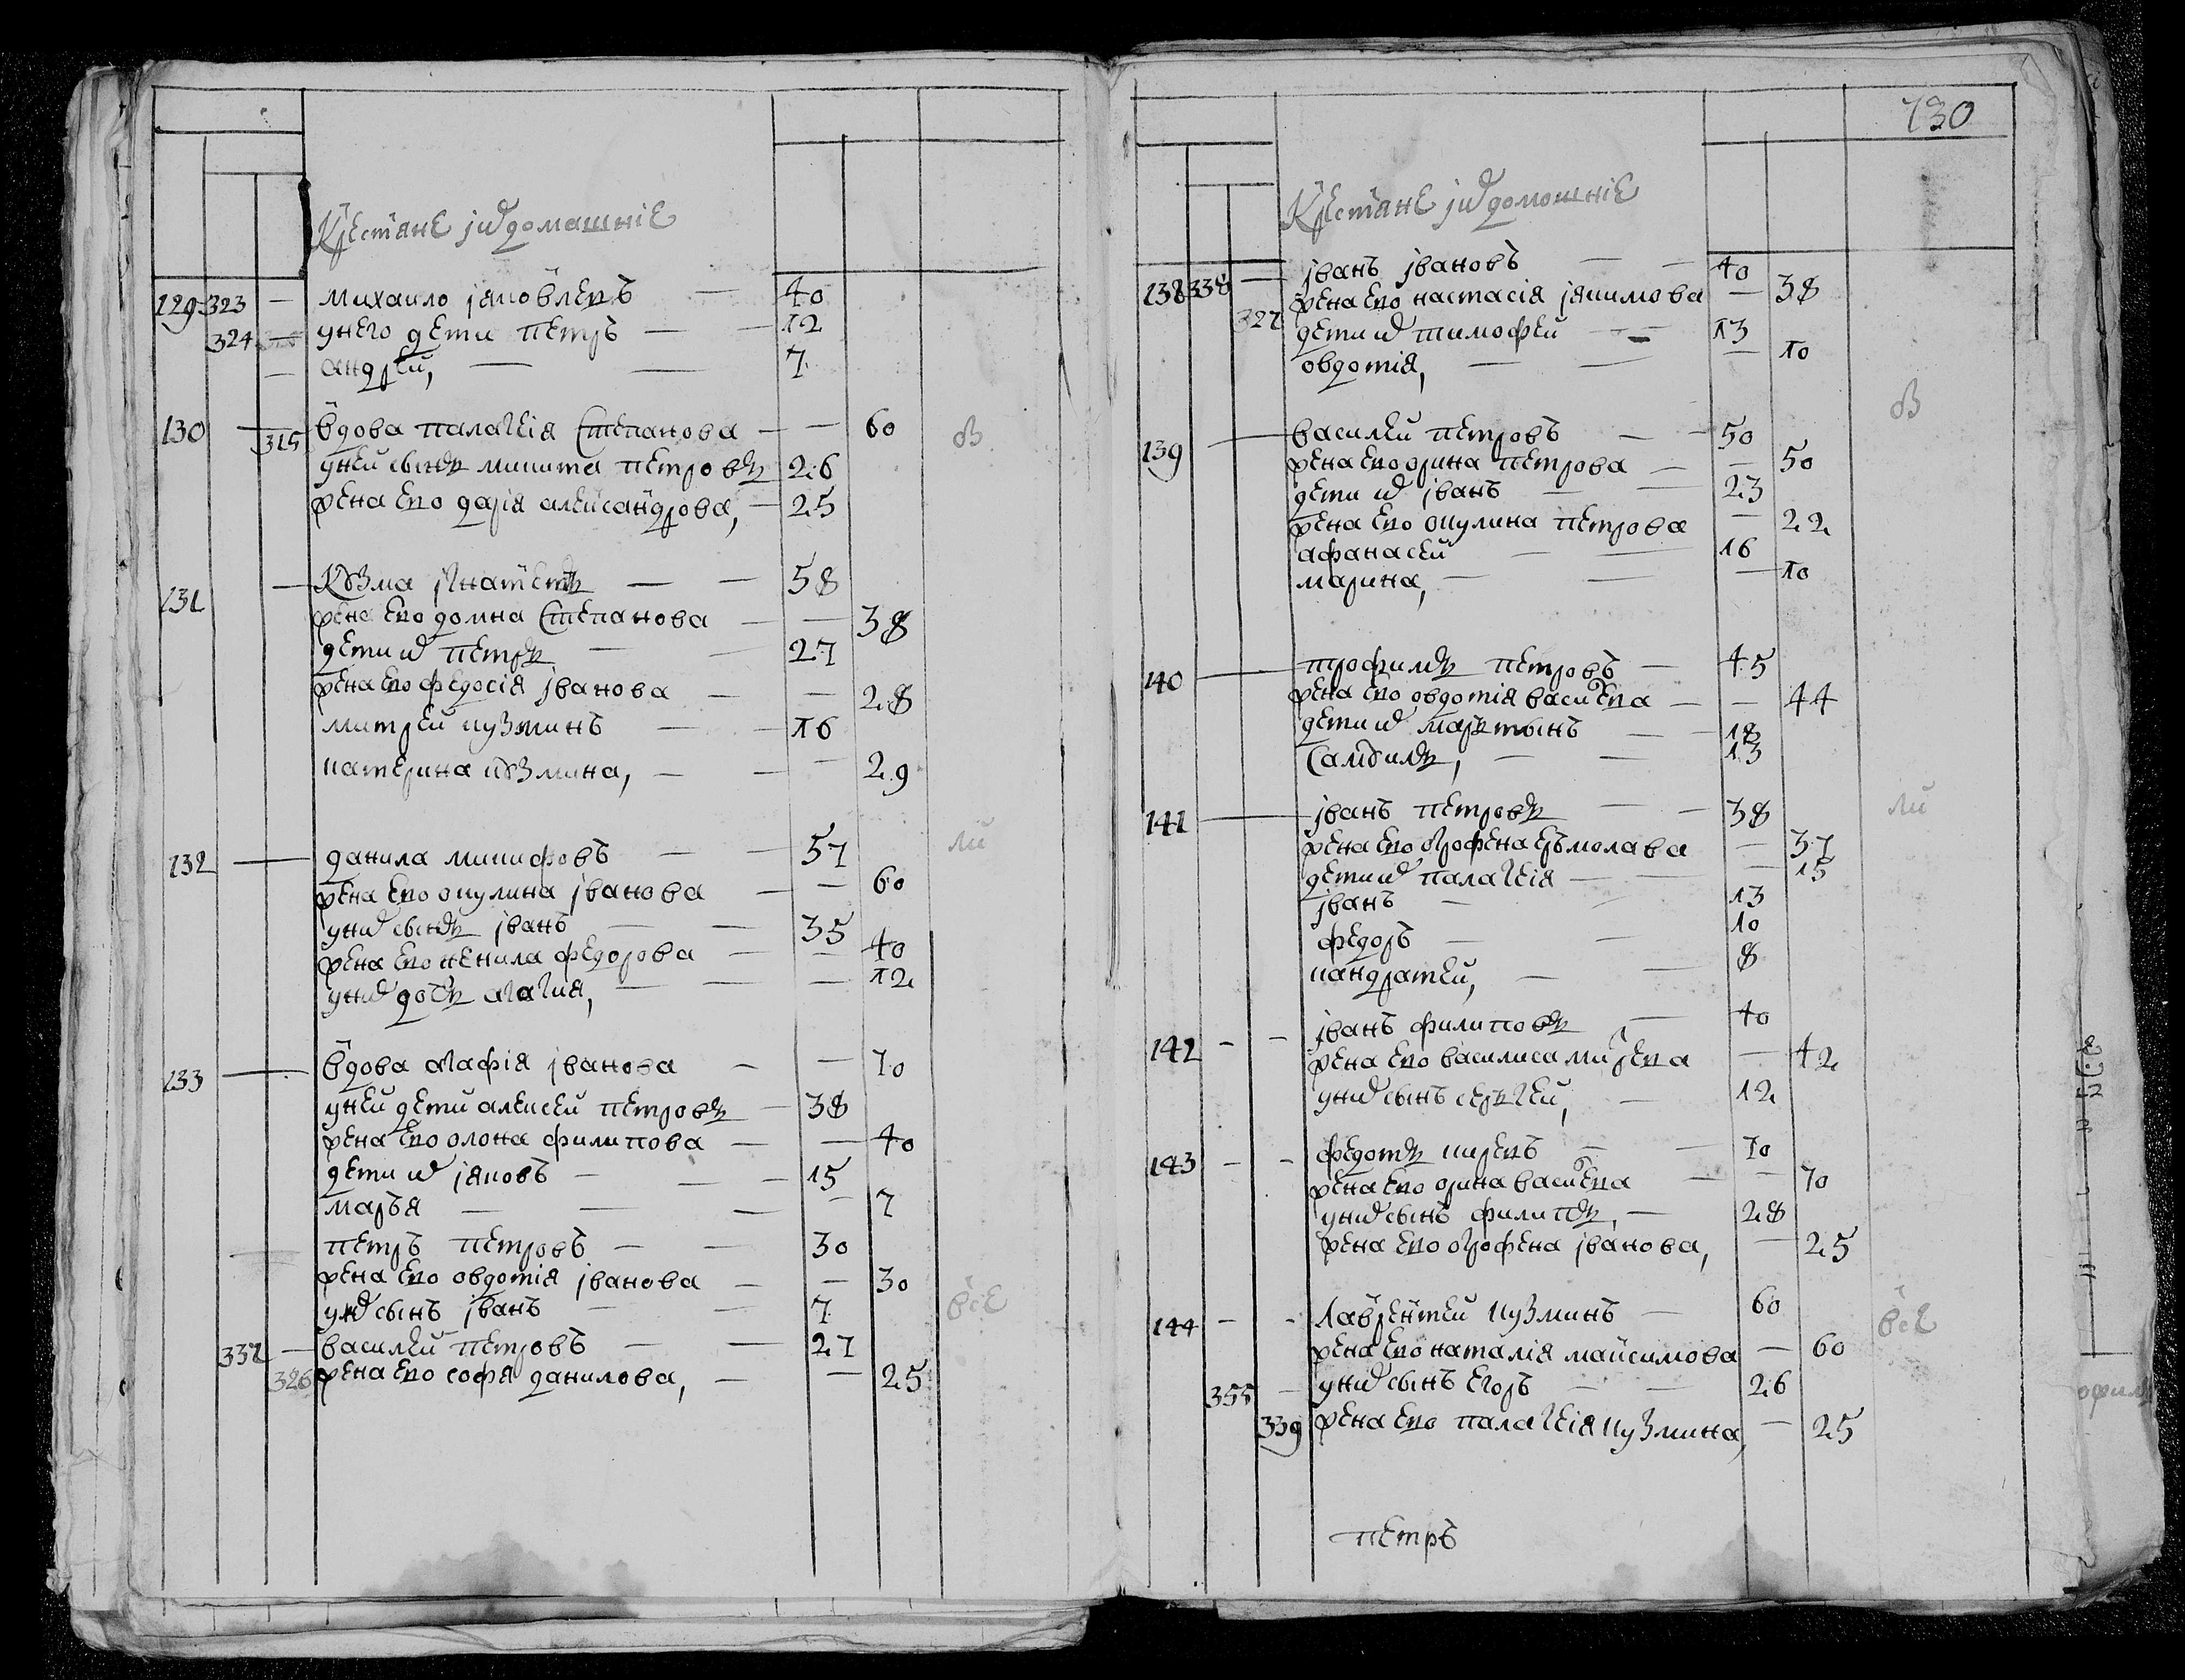 Крестяне ихдомашние
129 323 — михаило яковлевъ — 40
324 — унего дети петръ — 12
— андрей, — 7
130 — 315 вдова палагея степанова — 60
уней сынъ никита петровъ 26
жена ево дарiя александрова, — 25
131 — Козма игнатьевъ — 58
жена ево домна степанова — 38
дети их петръ — 27
жена ево федосiя iванова — 28
митрей кузминъ — 16
катерина козмина, — 29
132 — данила никифовъ — 57
жена ево окулина iванова — 60
уних сынъ iванъ — 35
жена ево ненила федорова — 40
уних дочь агагия, — 12
133 — вдова агафiя iванова — 70
уней дети алексей петровъ — 38
жена ево олона филипова — 40
дети их яковъ — 15
марья — 7
петръ петровъ — 30
жена ево овдотiя iванова — 30
уних сынъ iванъ — 7
337 — василей петровъ — 27
326 жена ево софя данилова, — 25
ов
ли
все
130
Крестяне ихдомошние
138 338 — iванъ iвановъ — 40
327 жена ево настасiя якимова — 38
дети их тимофей — 13
овдотiя, — 10
139 — василей петровъ — 50
жена ево орина петрова — 50
дети их iванъ — 23
жена ево окулина петрова — 22
афанасей — 16
марина, — 10
140 — трофимъ петровъ — 45
жена ево овдотiя васильева — 44
дети их мартынъ — 18
самоилъ, — 13
141 — iванъ петровъ — 38
жена ево огрофена ермолава — 37
дети их палагея — 15
iванъ — 13
федоръ — 10
кандратей, — 8
142 - - iванъ филиповъ — 40
жена ево василиса — 42
уних сынъ сергей, — 12
143 - - федотъ — 70
жена ево орина васильева — 70
уних сынъ филипъ, — 28
жена ево огрофена iванова, — 25
144 - - лаврентей кузминъ — 60
жена ево наталiя максимова — 60
355 — уних сынъ егоръ — 26
339 жена ево палагея кузмина, — 25
ов
ли
все
петръ